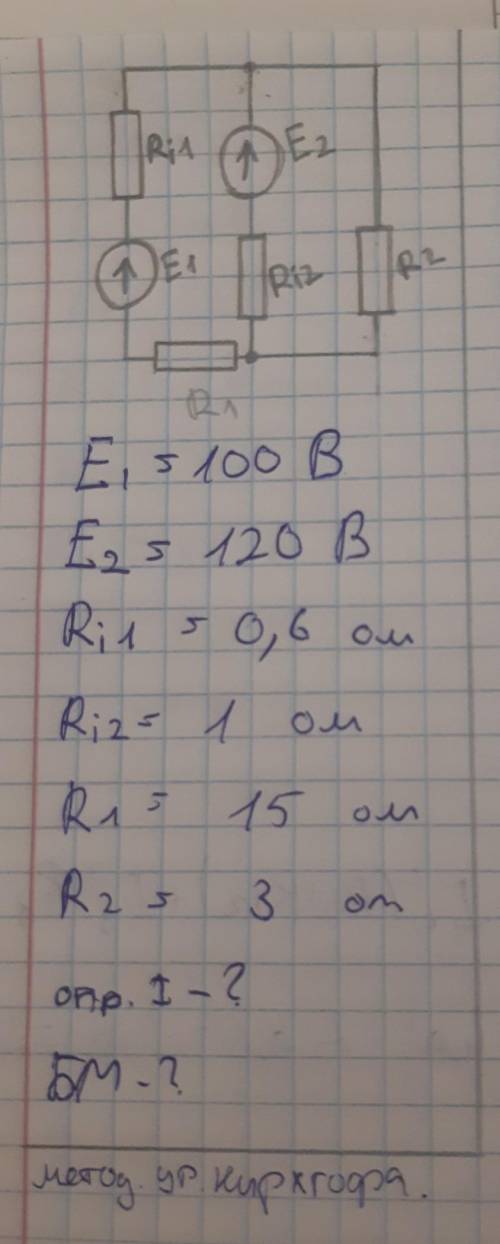 Ri1
E2
E1
Ri2
R2
R1
E1 = 100 В
E2 = 120 В
Ri1 = 0,6 ом
Ri2 = 1 ом
R1 = 15 ом
R2 = 3 ом
опр. I - ?
БМ - ?
метод. ур. Кирхгофа.